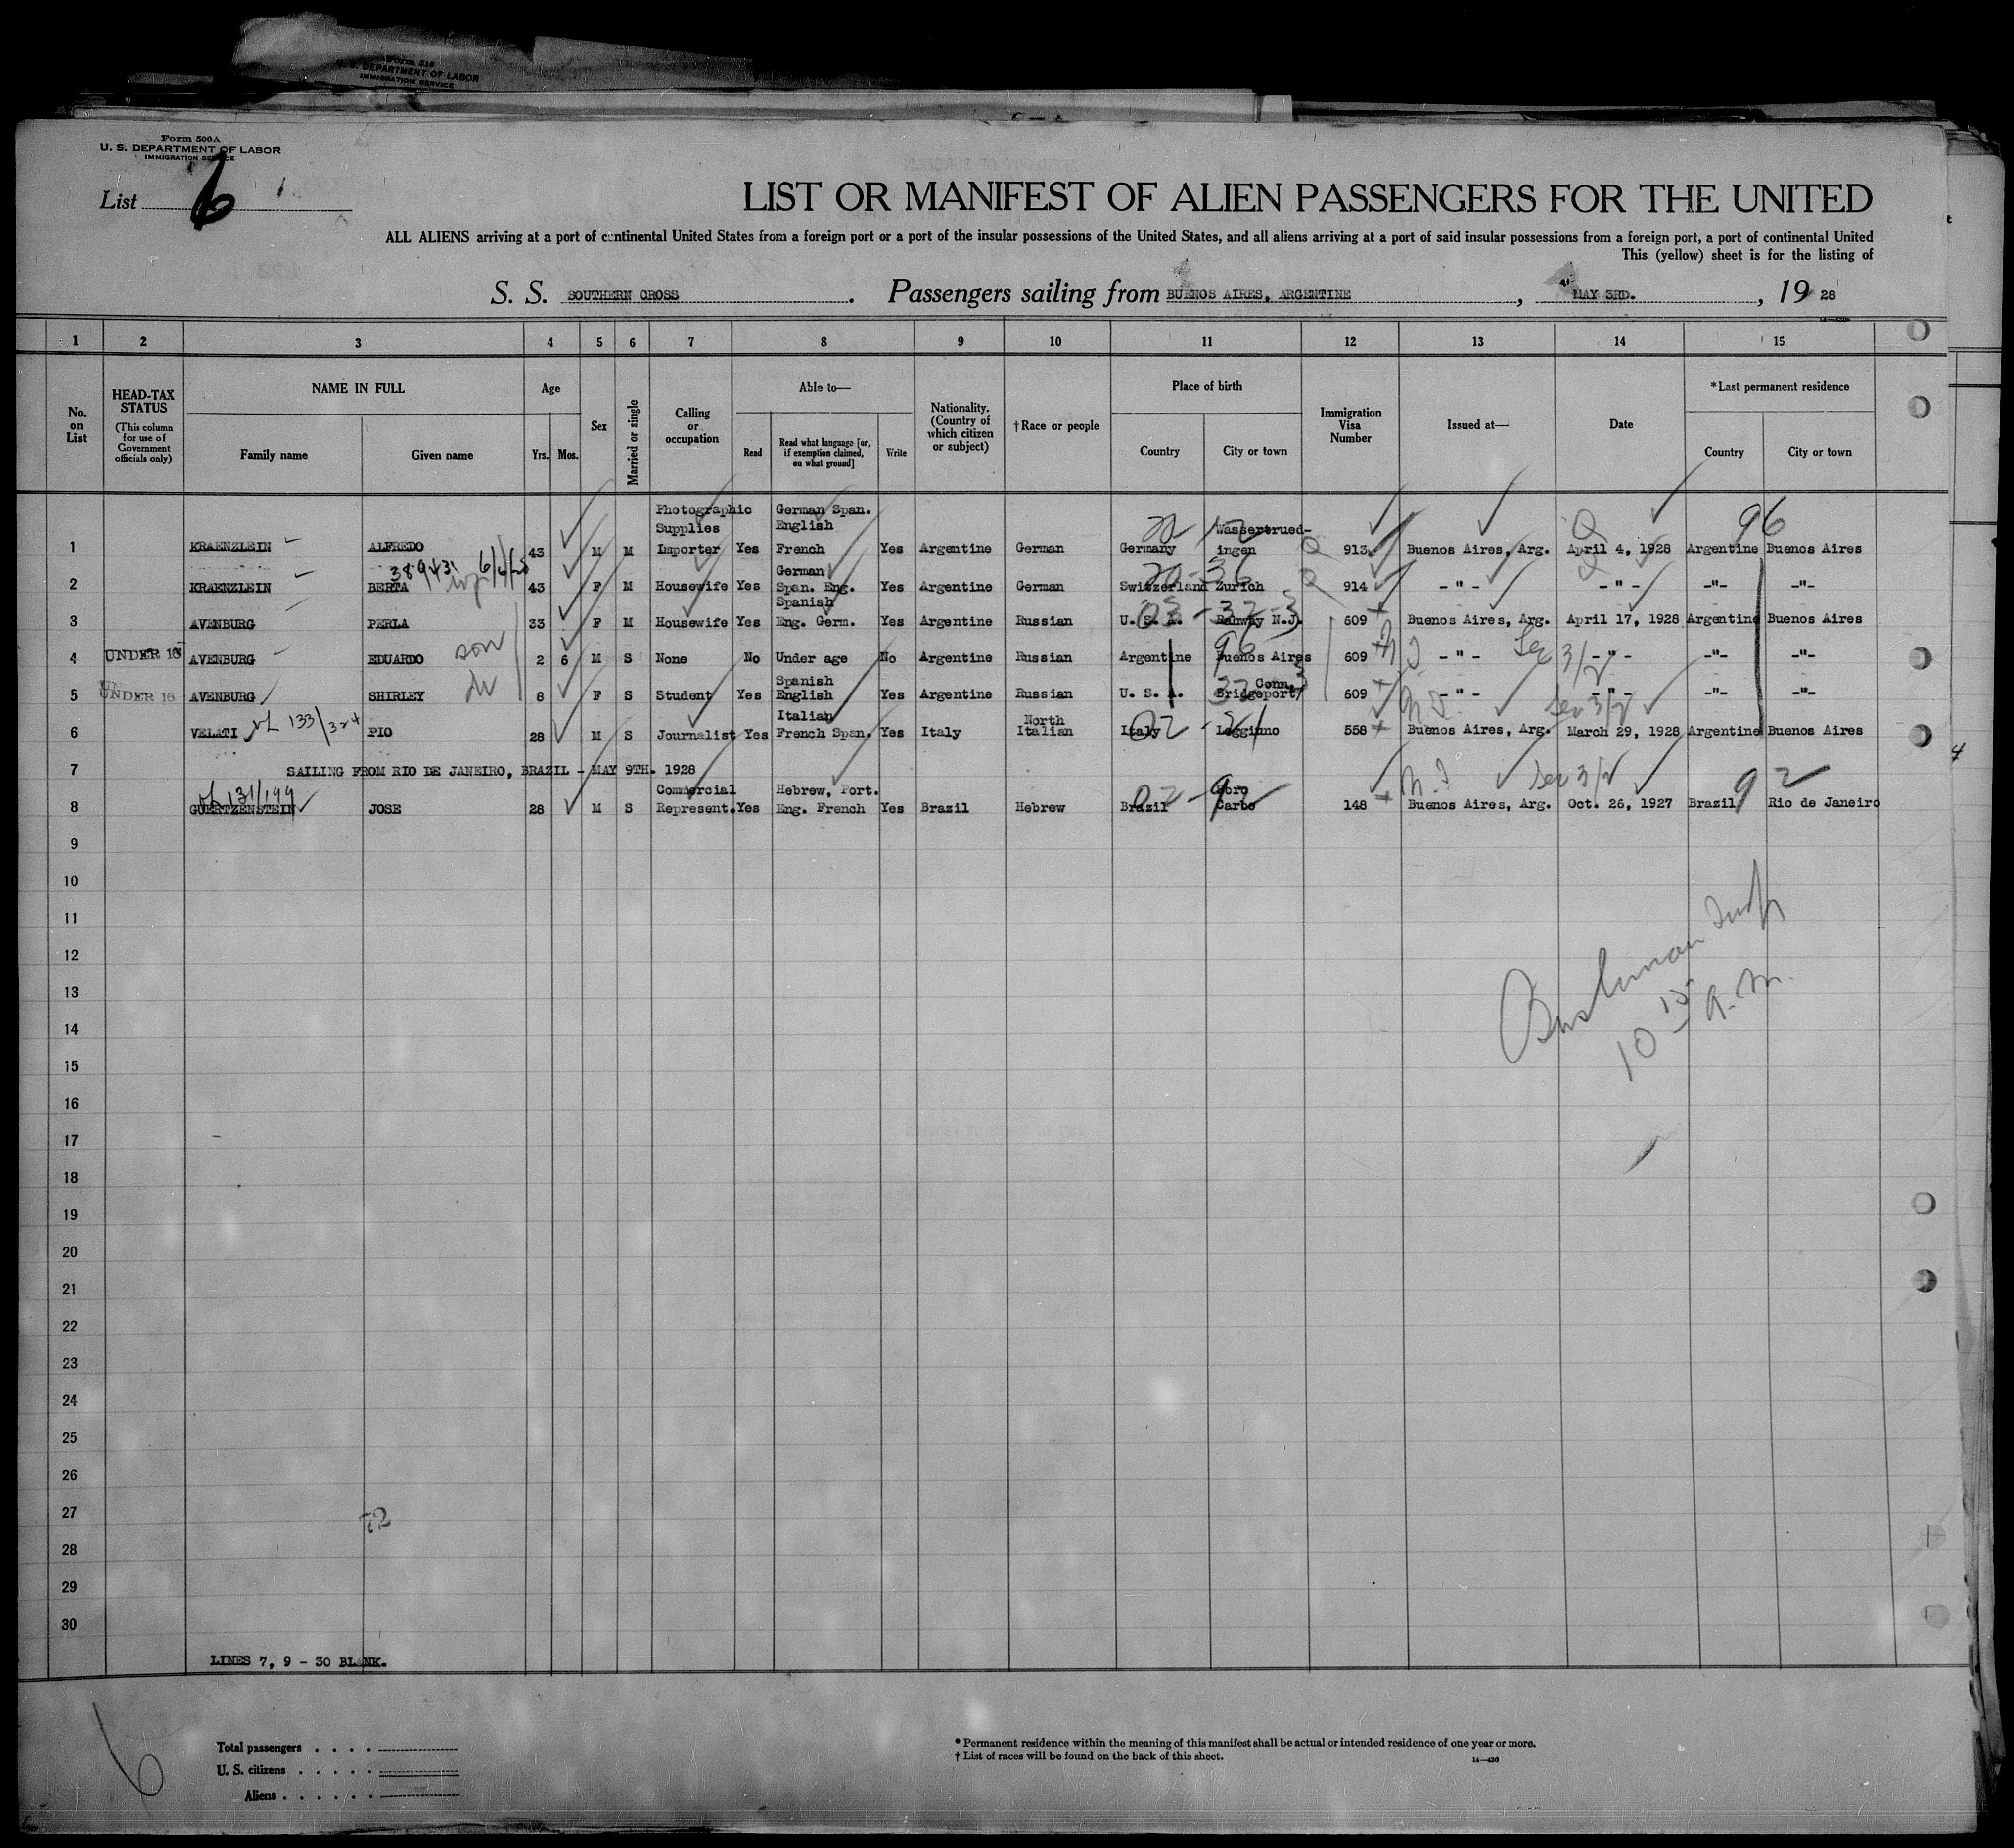 Form 516
U. S. DEPARTMENT OF LABOR
IMMIGRATION SERVICE
Form 500A
U. S. DEPARTMENT OF LABOR
IMMIGRATION SERVICE
List 6
LIST OR MANIFEST OF ALIEN PASSENGERS FOR THE UNITED
ALL ALIENS arriving at a port of continental United States from a foreign port or a port of the insular possessions of the United States, and all aliens arriving at a port of said insular possessions from a foreign port, a port of continental United
This (yellow) sheet is for the listing of
S. S. SOUTHERN CROSS. Passengers sailing from BUENOS AIRES, ARGENTINE, MAY 3RD., 19 28
1 2 3 4 5 6 7 8 9 10 11 12 13 14 15
No. on List
HEAD-TAX STATUS
(This column for use of Government officials only)
NAME IN FULL
Family name Given name
Age
Yrs. Mos.
Sex
Married or single
Calling or occupation
Able to—
Read
Read what language [or, if exemption claimed, on what ground]
Write
Nationality. (Country of which citizen or subject)
†Race or people
Place of birth
Country City or town
Immigration Visa Number
Issued at—
Date
*Last permanent residence
Country City or town
Photographic German Span.
Supplies English Wassertrued- 96
1 KRAENZLEIN ALFREDO 43 M M Importer Yes French Yes Argentine German Germany ingen 913 Buenos Aires, Arg. April 4, 1928 Argentine Buenos Aires
German
2 KRAENZLEIN BERTA 43 F M Housewife Yes Span. Eng. Yes Argentine German Switzerland Zurich 914 - " - - " - -"- -"-
Spanish
3 AVENBURG PERLA 33 F M Housewife Yes Eng. Germ. Yes Argentine Russian U. S. A. Rahway N.J. 609 Buenos Aires, Arg. April 17, 1928 Argentine Buenos Aires
4 UNDER 16 AVENBURG EDUARDO son 2 6 M S None No Under age No Argentine Russian Argentine Buenos Aires 609 - " - - " - -"- -"-
Spanish Conn.
5 UNDER 16 AVENBURG SHIRLEY 8 F S Student Yes English Yes Argentine Russian U. S. A. Bridgeport 609 - " - - " - -"- -"-
Italian North
6 VELATI 133/324 PIO 28 M S Journalist Yes French Span. Yes Italy Italian Italy Loggiuno 558 Buenos Aires, Arg. March 29, 1928 Argentine Buenos Aires
7 SAILING FROM RIO DE JANEIRO, BRAZIL - MAY 9TH. 1928
131/199 Commercial Hebrew, Port. 92
8 GUERTZENSTEIN JOSE 28 M S Represent. Yes Eng. French Yes Brazil Hebrew Brazil Carbo 148 Buenos Aires, Arg. Oct. 26, 1927 Brazil Rio de Janeiro
9
10
11
12
13
10 15 a.m.
14
15
16
17
18
19
20
21
22
23
24
25
26
27
28
29
30
LINES 7, 9 - 30 BLANK.
6
Total passengers . . . .
U. S. citizens . . . . .
Aliens . . . . . .
* Permanent residence within the meaning of this manifest shall be actual or intended residence of one year or more.
† List of races will be found on the back of this sheet.
14—430